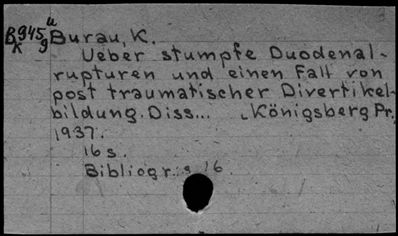 B945u Burau, K.
K 9
Ueber stumpfe Duodenal-
rupturen und einen Fall von
post traumatischer Divertikel-
bildung. Diss... Königsberg Pr.,
1937.
16 s.
Bibliogr. s 16.